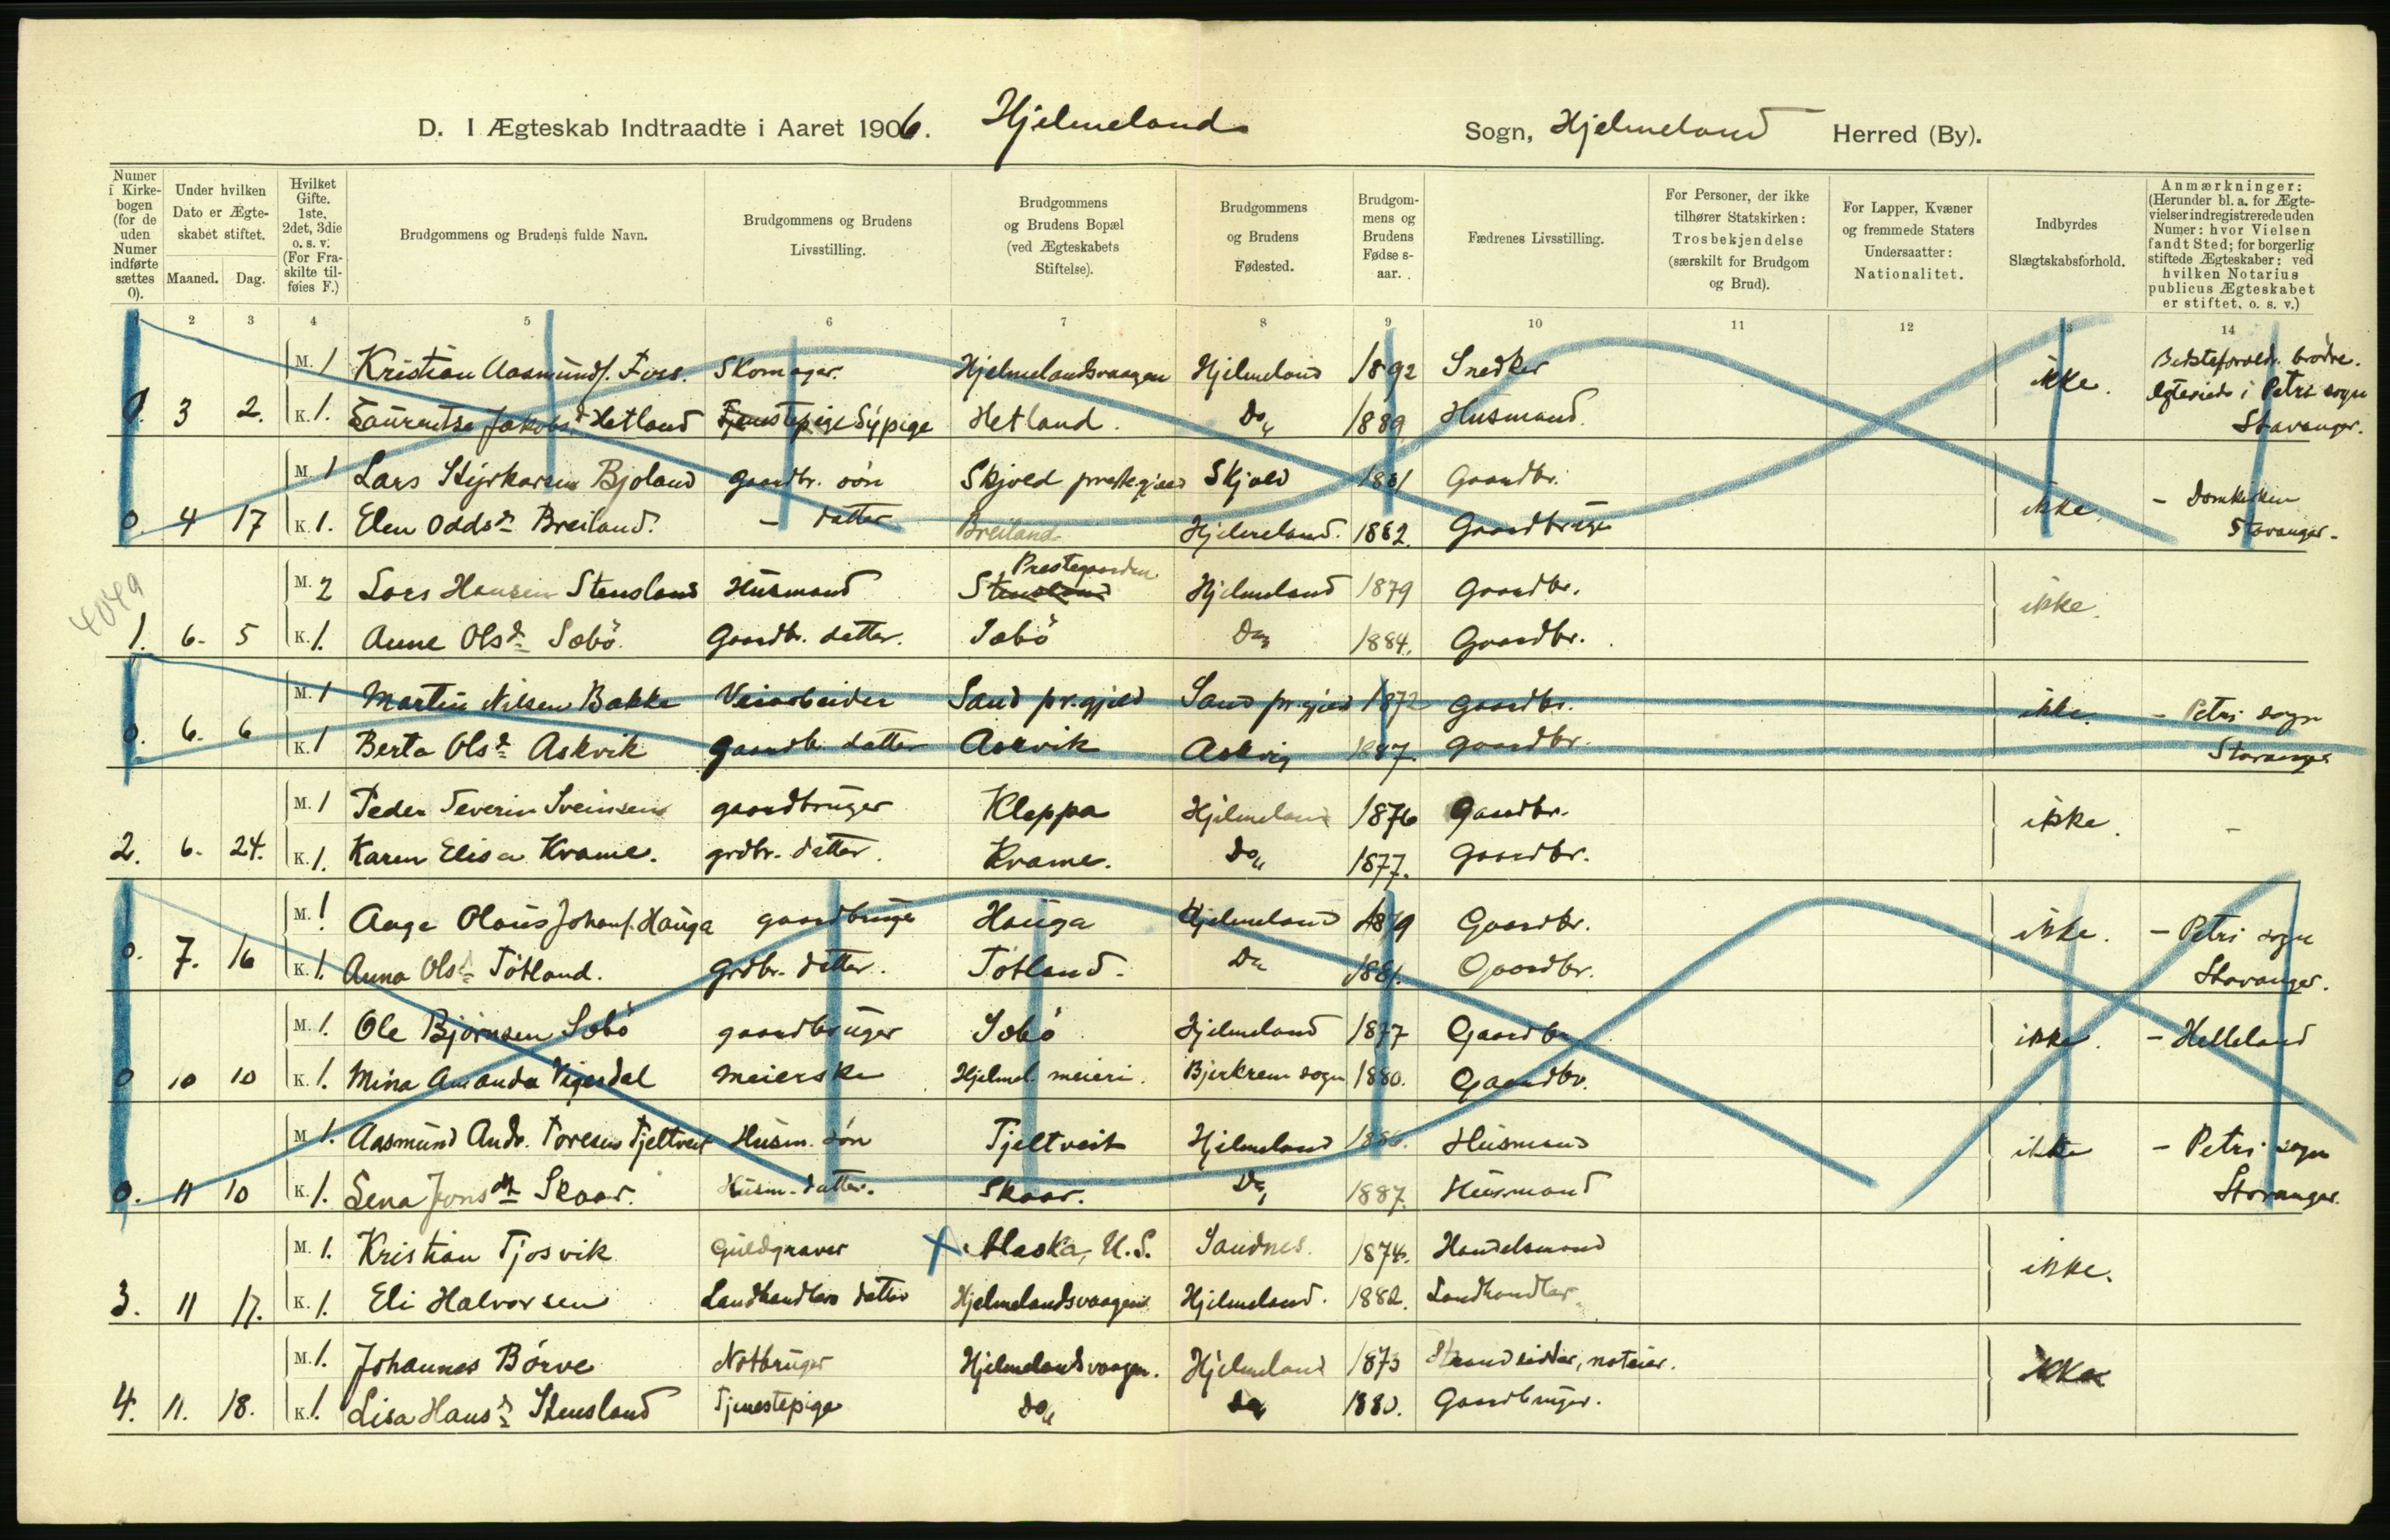 D. I Ægteskab Indtraadte i Aaret 1906. Hjelmeland Sogn, Hjelmeland Herred (By).
Numer i Kirke-bogen (for de uden Numer indførte sættes 0).
Under hvilken Dato er Ægte-skabet stiftet.
Maaned. Dag.
Hvilket Gifte. 1ste, 2det, 3die o. s. v. (For Fra-skilte til-føies F.)
Brudgommens og Brudens fulde Navn.
Brudgommens og Brudens Livsstilling.
Brudgommens og Brudens Bopæl (ved Ægteskabets Stiftelse).
Brudgommens og Brudens Fødested.
Brudgom-mens og Brudens Fødse s-aar.
Fædrenes Livsstilling.
For Personer, der ikke tilhører Statskirken: Trosbekjendelse (særskilt for Brudgom og Brud).
For Lapper, Kvæner og fremmede Staters Undersaatter: Nationalitet.
Indbyrdes Slægtskabsforhold.
Anmærkninger: (Herunder bl. a. for Ægte-vielser indregistrerede uden Numer: hvor Vielsen fandt Sted; for borgerlig stiftede Ægteskaber: ved hvilken Notarius publicus Ægteskabet er stiftet. o. s. v.)
2 3 4 5 6 7 8 9 10 11 12 13 14
M. 1 Kristian Aasmunds. Foss. Skomager. Hjelmelandsvaagen Hjelmeland 1892 Snedker ikke. brødre.
0. 3 2. K. 1. Lauritse Jakobsd. Hetland Tjenestepige Sypige Hetland. Do 1889 Husmand. i Petri sogn
Stavanger.
M. 1 Lars Styrkarsen Bjoland Gaardbr. søn Skjold prestegjeld Skjold 1881 Gaardbr.
0. 4 17 K. 1. Elen Oddsd. Breiland. - datter Breiland Hjelmeland. 1882. Gaardbruger ikke. - Domkirken
Stavanger.
4049
Prestegaarden
M. 2 Lars Hansen Stensland Husmand Stensland Hjelmeland 1879 Gaardbr. ikke.
1. 6. 5 K. 1. Anne Olsd. Sæbö. Gaardbr. datter. Sæbö Do 1884. Gaardbr.
M. 1 Martin Nilsen Bakke Veiarbeider Sand pr.gjeld Sand pr.gjeld 1872 Gaardbr. ikke. - Petri sogn
0. 6. 6 K. 1 Berta Olsd. Askvik Gaardb. datter Askvik Askvig 1887. Gaardbr. Stavanger
M. 1 Peder Severin Sveinsen gaardbruger Kleppa Hjelmeland 1876 Gaardbr. ikke. -
2. 6. 24. K. 1. Karen Elisa Kvame. grdbr. datter. Kvame. Do 1877. Gaardbr.
M. 1 Aage Olaus Johans. Hauga gaardbruger Hauga Hjelmeland 1879 Gaardbr. ikke. - Petri sogn
0. 7. 16 K. 1. Anna Olsd. Tötland. Grdbr. datter. Tötland. Do 1881. Gaardbr. Stavanger.
M. 1. Ole Bjørnsen Sæbö gaardbruger Sæbö Hjelmeland 1877 Gaardbr. ikke. - Helleland
0 10 10 K. 1. Mina Amanda Vigesdal Meierske Hjelmel. meieri. Bjerkrem sogn 1880. Gaardbr.
M 1. Aasmund Andr. Toresen Tjeltveit Husm. søn Tjeltveit Hjelmeland Husmand ikke - Petri sogn
0. 11 10 K. 1. Lena Jonsdtr. Skaar. Husm. datter. Skaar. Do 1887. Husmand Stavanger.
M. 1. Kristian Tjosvik Guldgraver Alaska, U.S. Sandnes. 1874. Handelsmand ikke.
3. 11 17. K. 1. Eli Halvorsen Landhandlers datter Hjelmelandsvaagen Hjelmeland. 1882. Landhandler
M. 1. Johannes Börve Notbruger Hjelmelandsvaagen. Hjelmeland 1873 Strandsidder, noteier. ikke
4. 11. 18. K. 1. Lisa Hansd. Stensland Tjenestepige Do Do 1880. Gaardbruger.